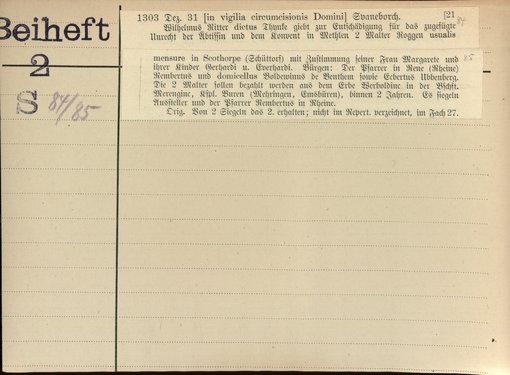 Beiheft
2
S 84/85
1303 Dez. 31 [in vigilia circumcisionis Domini] Svaneborch. [21
84
Wilhelmus Ritter dictus Thynke giebt zur Entschädigung für das zugefügte
Unrecht der Abtissin und dem Konvent in Metzlen 2 Malter Roggen usualis
85
mensure in Scothorpe (Schüttorf) mit Zustimmung seiner Frau Margarete und
ihrer Kinder Gerhardi u. Everhardi. Bürgen: Der Pfarrer in Rene (Rheine)
Rembertus und domicellus Boldewinus de Benthem sowie Ecbertus Ubbenberg.
Die 2 Malter sollen bezahlt werden aus dem Erbe Werboldinc in der Bschft.
Merengine, Kspl. Buren (Mehringen, Emsbüren), binnen 2 Jahren. Es siegeln
Aussteller und der Pfarrer Rembertus in Rheine.
Orig. Von 2 Siegeln das 2. erhalten; nicht im Repert. verzeichnet, im Fach 27.